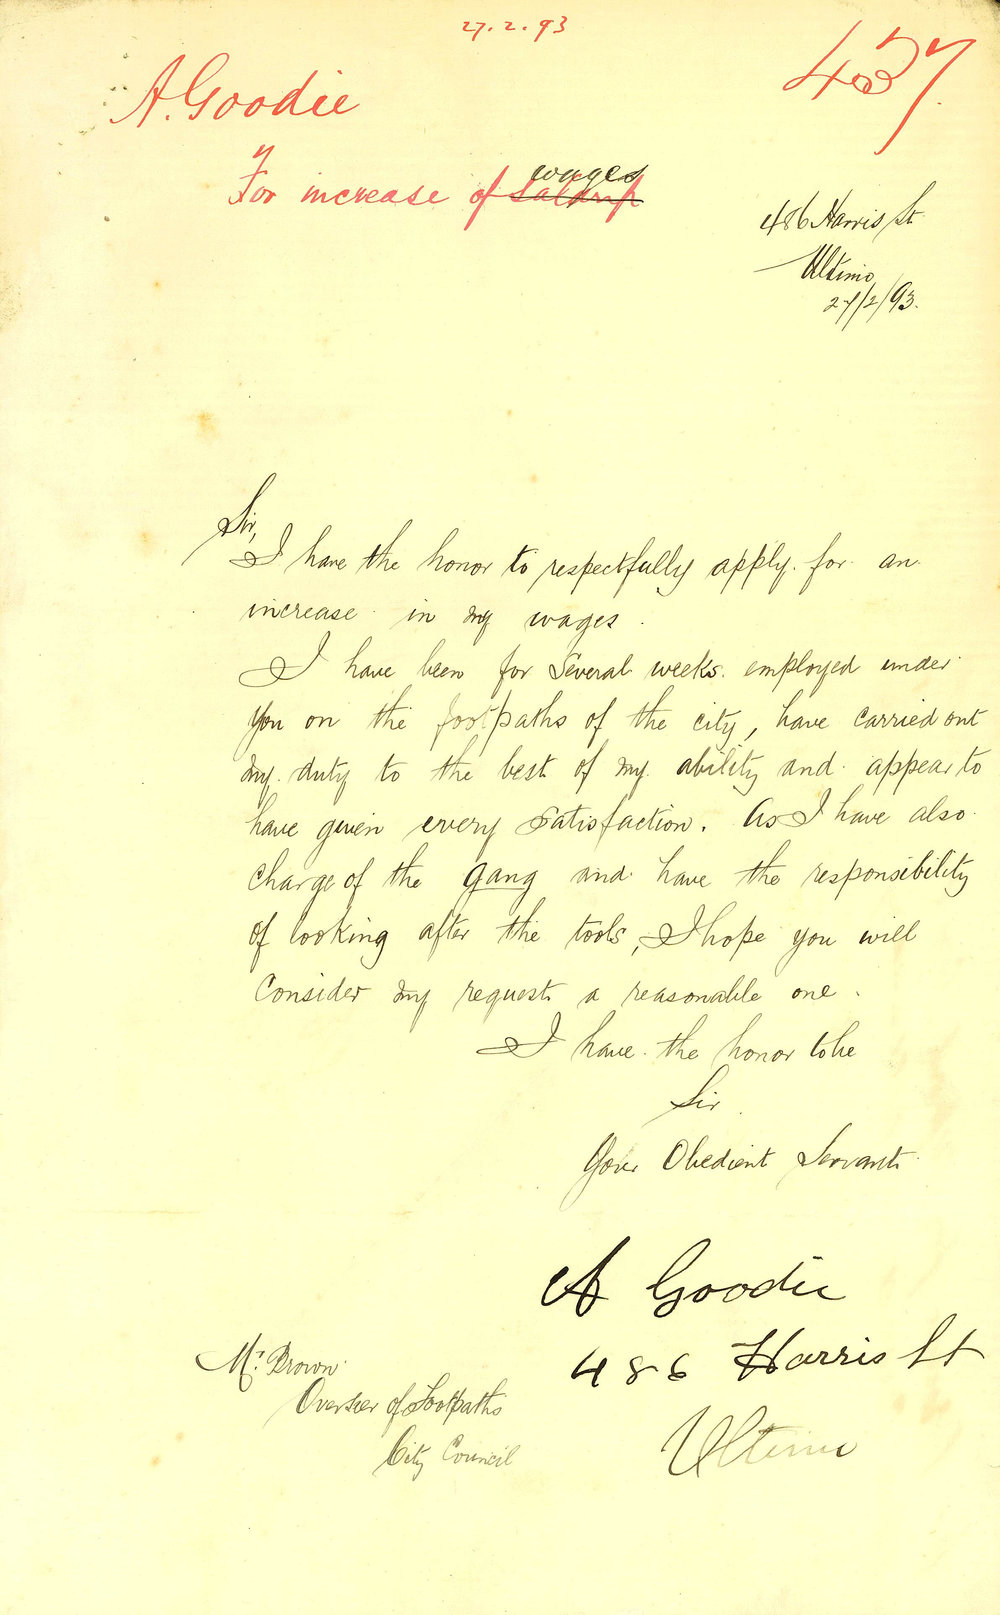 27.2.93
437
A. Goodie
For increase of Salary wages
486 Harris St
Ultimo
27/2/93.
Sir,
I have the honor to respectfully apply for an
increase in my wages.
I have been for several weeks employed under
you on the footpaths of the city, have carried out
my duty to the best of my ability and appear to
have given every satisfaction. As I have also
charge of the gang and have the responsibility
of looking after the tools, I hope you will
Consider my request a reasonable one.
I have the honor to be
Sir
Your Obedient Servant
A Goodie
486 Harris St
Ultimo
Mr. Brown
Overseer of Footpaths
City Council